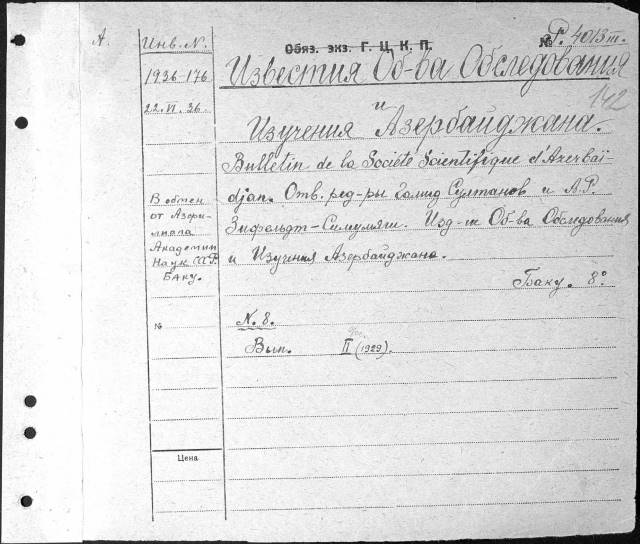 А.
Инв. N.
Обяз. экз. Г. Ц. К. П.
№ Р. 4013 III.
1936-176
Известия Об-ва Обследования
22. VI. 36.
и
142
Изучения Азербайджана.
Bulletin de la Société Scientifique d'Azerbaï-
djan. Отв. ред-ры Гамид Султанов и А. Р.
В обмен
Зифельдт-Симумяги. Изд-ие Об-ва Обследования
от Азерб.
филиала
Академии
и Изучения Азербайджана.
Наук СССР
Баку.
Баку. 8°
№
N. 8.
Вып. II (1929).
Цена